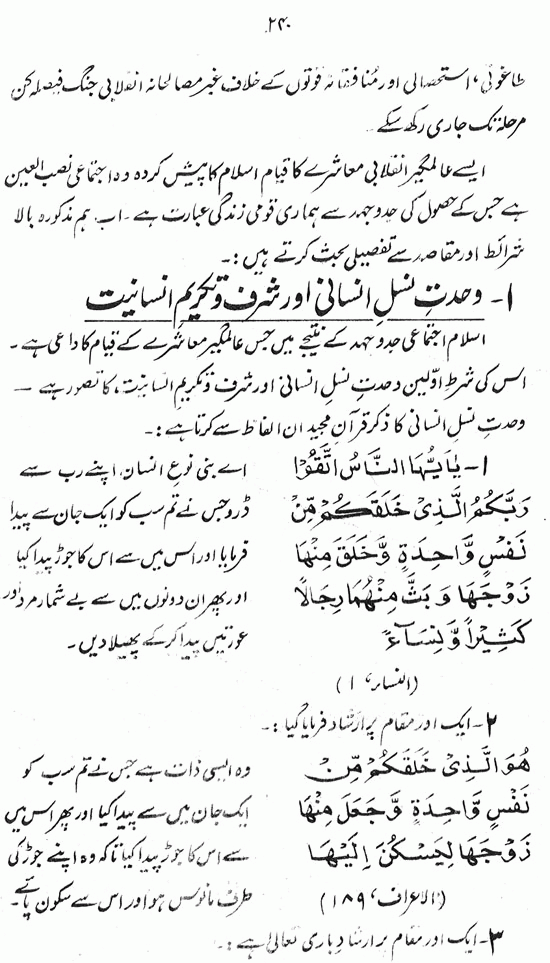 ۲۴۰
طاغوتی، استحصالی اور مُنافقانہ قوتوں کے خلاف غیر مصالحانہ انقلابی جنگ فیصلہ کن
مرحلہ تک جاری رکھ سکے۔
ایسے عالمگیر انقلابی معاشرے کا قیام اسلام کا پیش کردہ وہ اجتماعی نصب العین
ہے جس کے حصول کی جدوجہد سے ہماری قومی زندگی عبارت ہے۔ اب ہم مذکورہ بالا
شرائط اور مقاصد سے تفصیلی بحث کرتے ہیں:۔
۱۔ وحدتِ نسلِ انسانی اور شرف و تکریمِ انسانیت
اسلام اجتماعی جدوجہد کے نتیجے میں جس عالمگیر معاشرے کے قیام کا داعی ہے۔
اس کی شرطِ اوّلین وحدتِ نسلِ انسانی اور شرف و تکریمِ انسانیت، کا تصور ہے —
وحدتِ نسلِ انسانی کا ذکر قرآنِ مجید ان الفاظ سے کرتا ہے:۔
۱۔ يٰٓاَيُّهَا النَّاسُ اتَّقُوْا
رَبَّكُمُ الَّذِىْ خَلَقَكُمْ مِّنْ
نَفْسٍ وَّاحِدَةٍ وَّخَلَقَ مِنْهَا
زَوْجَهَا وَ بَثَّ مِنْهُمَا رِجَالًا
كَثِيْرًا وَّ نِسَآءً
(النساء، ۱)
اے بنی نوعِ انسان! اپنے رب سے
ڈرو جس نے تم سب کو ایک جان سے پیدا
فرمایا اور اس میں سے اس کا جوڑ پیدا کیا
اور پھر ان دونوں میں سے بے شمار مرد اور
عورتیں پیدا کر کے پھیلا دیں۔
۲۔ ایک اور مقام پر ارشاد فرمایا گیا:۔
هُوَ الَّذِىْ خَلَقَكُمْ مِّنْ
نَفْسٍ وَّاحِدَةٍ وَّجَعَلَ مِنْهَا
زَوْجَهَا لِيَسْكُنَ اِلَيْهَا
(الاعراف، ۱۸۹)
وہ ایسی ذات ہے جس نے تم سب کو
ایک جان میں سے پیدا کیا اور پھر اس میں
سے اس کا جوڑ پیدا کیا تاکہ وہ اپنے جوڑ کی
طرف مانوس ہو اور اس سے سکون پائے۔
۳۔ ایک اور مقام پر ارشادِ باری تعالیٰ ہے:۔